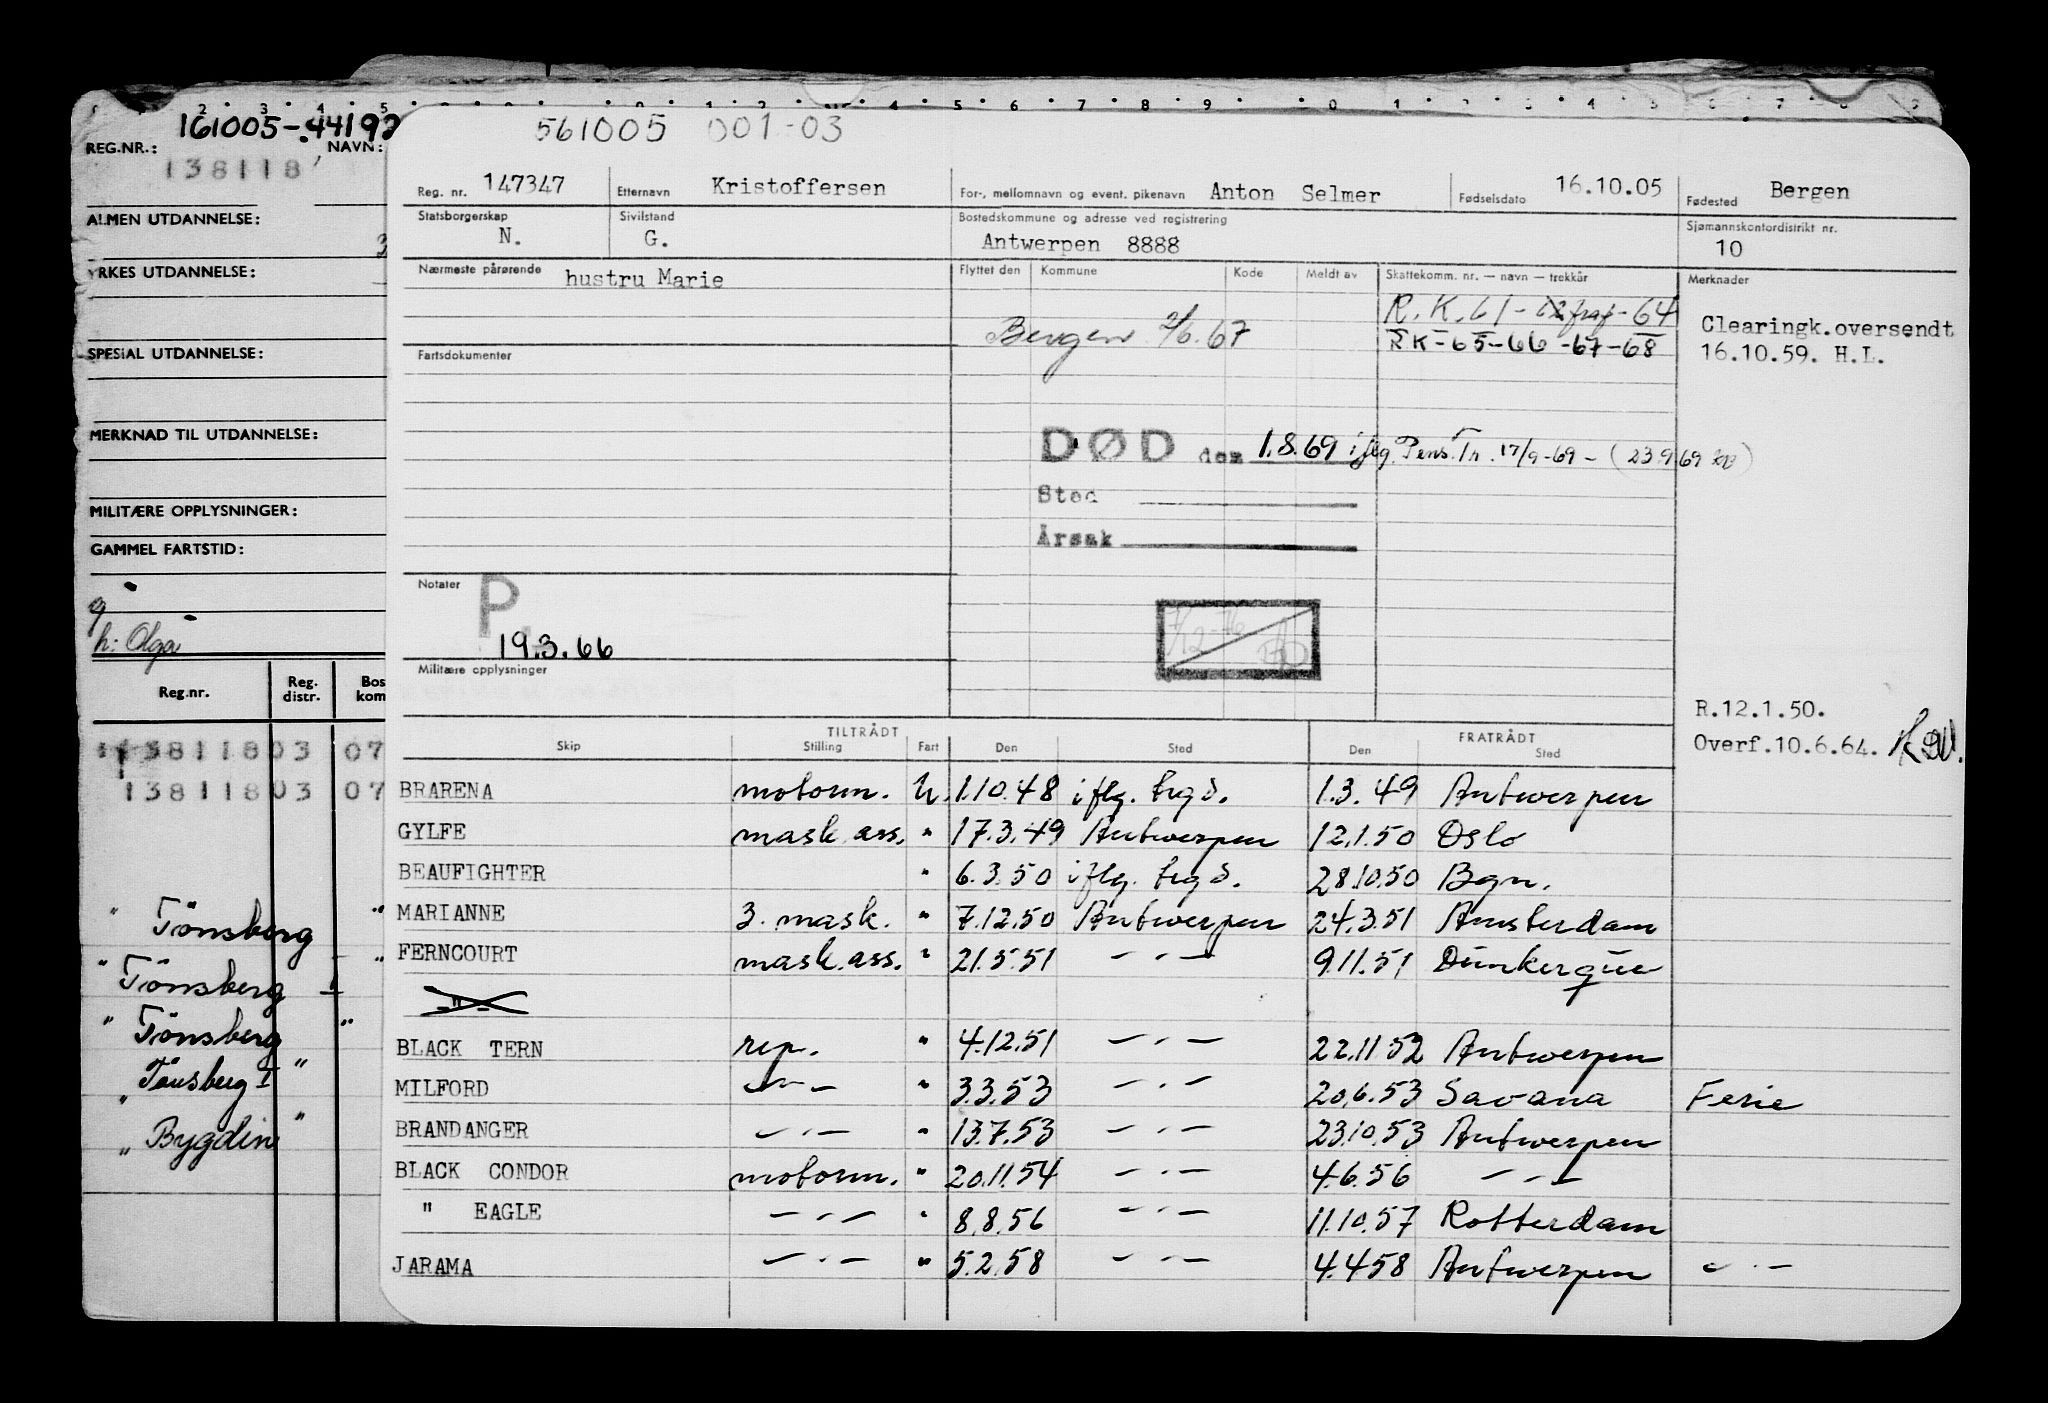 161005-44192
REG.NR.: NAVN:
138118
ALMEN UTDANNELSE:
YRKES UTDANNELSE:
SPESIAL UTDANNELSE:
MERKNAD TIL UTDANNELSE:
MILITÆRE OPPLYSNINGER:
GAMMEL FARTSTID:
g
h: Olga
Reg.nr. Reg. distr. Bos kom
13811803 07
13811803 07
" Tönsberg "
" Tönsberg I "
" Tönsberg "
" Tönsberg I "
" Bygdin "
561005 001-03
Reg. nr. 147347 Etternavn Kristoffersen For-, mellomnavn og event. pikenavn Anton Selmer Fødselsdato 16.10.05 Fødested Bergen
Statsborgerskap N. Sivilstand G. Bostedskommune og adresse ved registrering Antwerpen 8888 Sjømannskontordistrikt nr. 10
Nærmeste pårørende hustru Marie Flyttet den Kommune Kode Meldt av Skattekomm. nr. — navn — trekkår Merknader
R.K. 61-62 fraf-64
Bergen 2/6.67
RK-65-66-67-68
Clearingk.oversendt
16.10.59. H.L.
Fartsdokumenter
DØD den 1.8.69 iflg. Pens.Tr. 17/9-69 - (23.9.69
Sted
Årsak
Notater P.
19.3.66
Militære opplysninger
R.12.1.50.
Overf.10.6.64.
TILTRÅDT FRATRÅDT
Skip Stilling Fart Den Sted Den Sted
BRARENA motorm. U. 1.10.48 iflg. trgd. 1.3.49 Antwerpen
GYLFE mask.ass. " 17.3.49 Antwerpen 12.1.50 Oslo
BEAUFIGHTER " 6.3.50 iflg. trgd. 28.10.50 Bgn.
MARIANNE 3. mask. " 7.12.50 Antwerpen 24.3.51 Amsterdam
FERNCOURT mask.ass. " 21.5.51 — " — 9.11.51 Dunkerque
— " —
BLACK TERN rep. " 4.12.51 — " — 22.11.52 Antwerpen
MILFORD — " — " 3.3.53 — " — 20.6.53 Savana Ferie
BRANDANGER — " — " 13.7.53 — " — 23.10.53 Antwerpen
BLACK CONDOR motorm. " 20.11.54 — " — 4.6.56 — " —
" EAGLE — " — " 8.8.56 — " — 11.10.57 Rotterdam
JARAMA — " — " 5.2.58 — " — 4.4.58 Antwerpen — " —